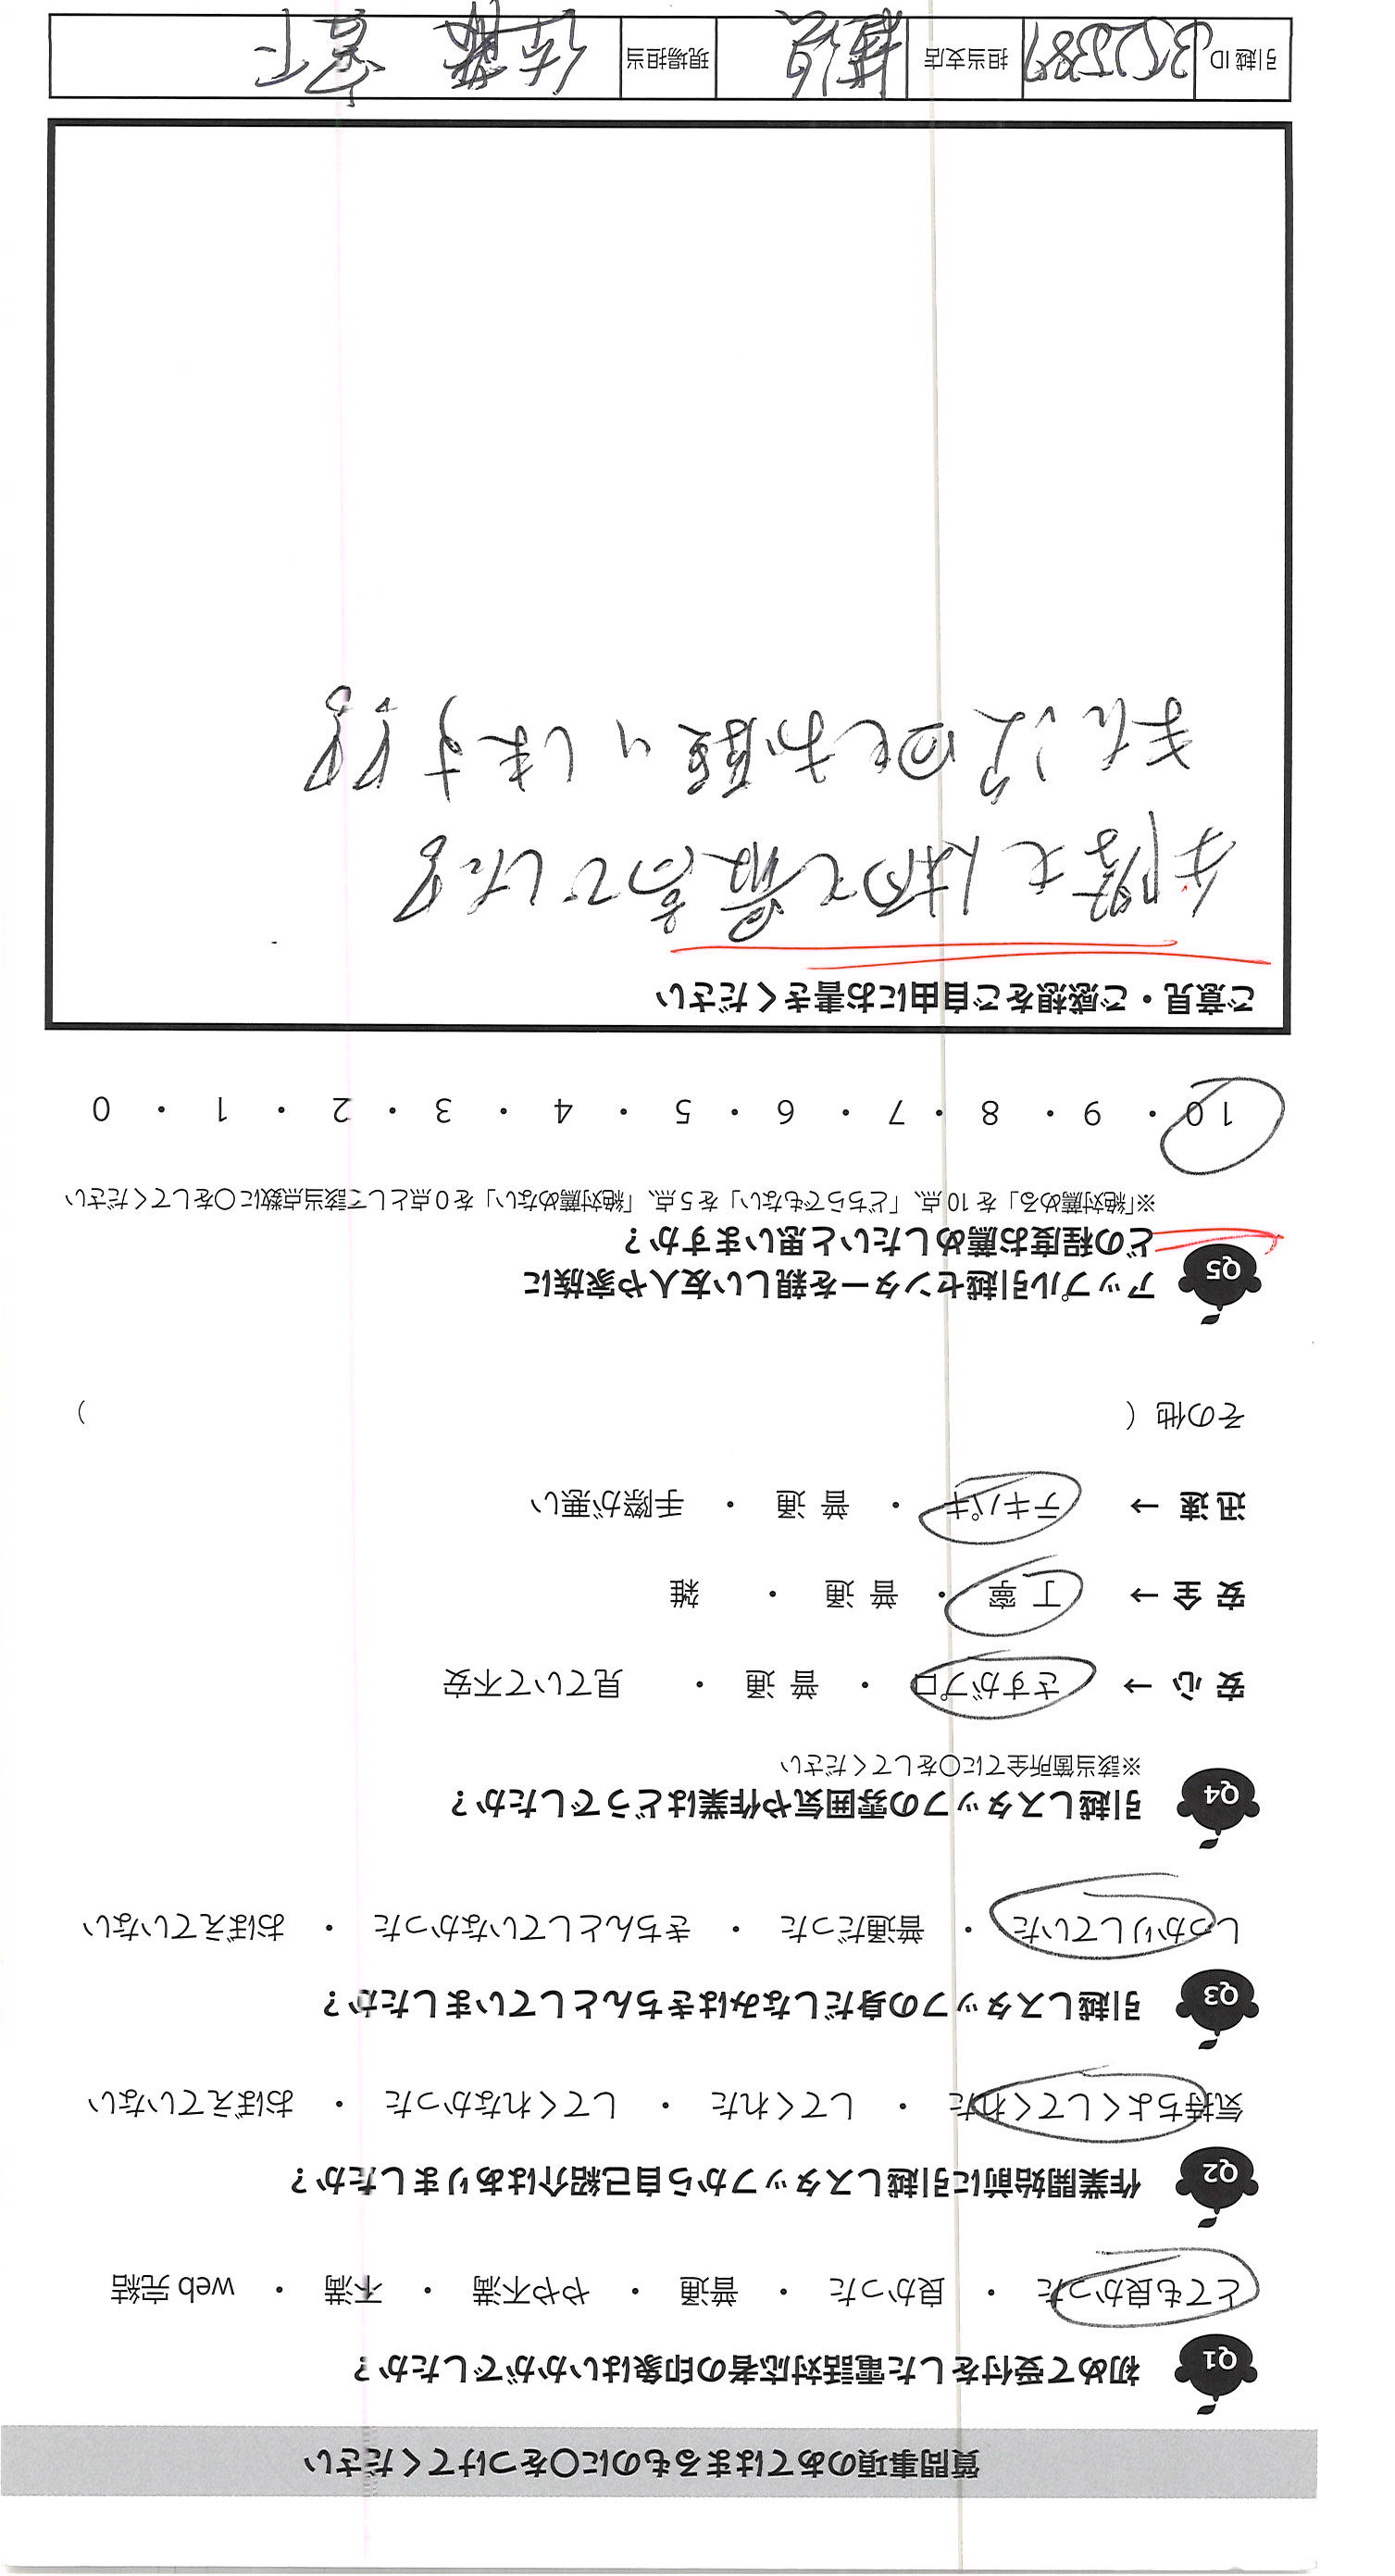 質問事項のあてはまるものに○をつけてください
Q1 初めて受付をした電話対応者の印象はいかがでしたか？
とても良かった ・ 良かった ・ 普通 ・ やや不満 ・ 不満 ・ web 完結
Q2 作業開始前に引越しスタッフから自己紹介はありましたか？
気持ちよくしてくれた ・ してくれた ・ してくれなかった ・ おぼえていない
Q3 引越しスタッフの身だしなみはきちんとしていましたか？
しっかりしていた ・ 普通だった ・ きちんとしていなかった ・ おぼえていない
Q4 引越しスタッフの雰囲気や作業はどうでしたか？
※該当箇所全てに○をしてください
安 心 → さすがプロ ・ 普 通 ・ 見ていて不安
安 全 → 丁 寧 ・ 普 通 ・ 雑
迅 速 → テキパキ ・ 普 通 ・ 手際が悪い
その他（ ）
Q5 アップル引越センターを親しい友人や家族に
どの程度お薦めしたいと思いますか？
※「絶対薦める」を 10 点、「どちらでもない」を 5 点、「絶対薦めない」を 0 点として該当点数に○をしてください
10 ・ 9 ・ 8 ・ 7 ・ 6 ・ 5 ・ 4 ・ 3 ・ 2 ・ 1 ・ 0
ご意見・ご感想をご自由にお書きください
最高でした
また次回もお願いします
引越 ID 担当支店 現場担当 佐藤